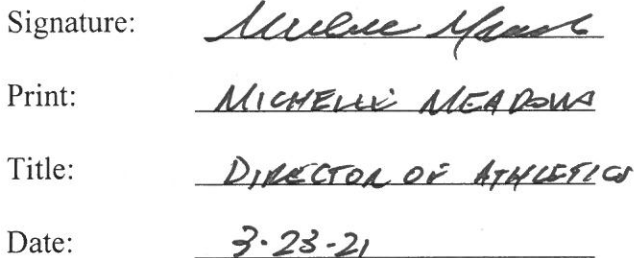 Signature: Michelle Meadows
Print: MICHELLE MEADOWS
Title: DIRECTOR OF ATHLETICS
Date: 3-23-21